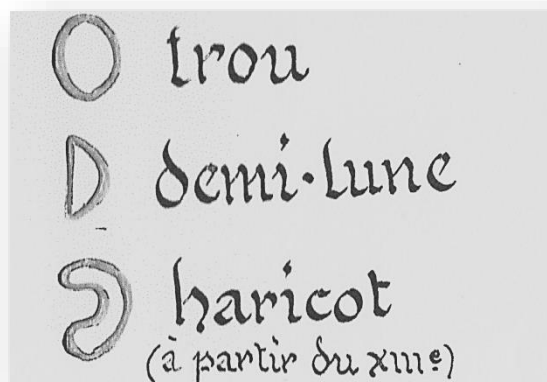 trou
demi-lune
haricot
(à partir du XIIIe)